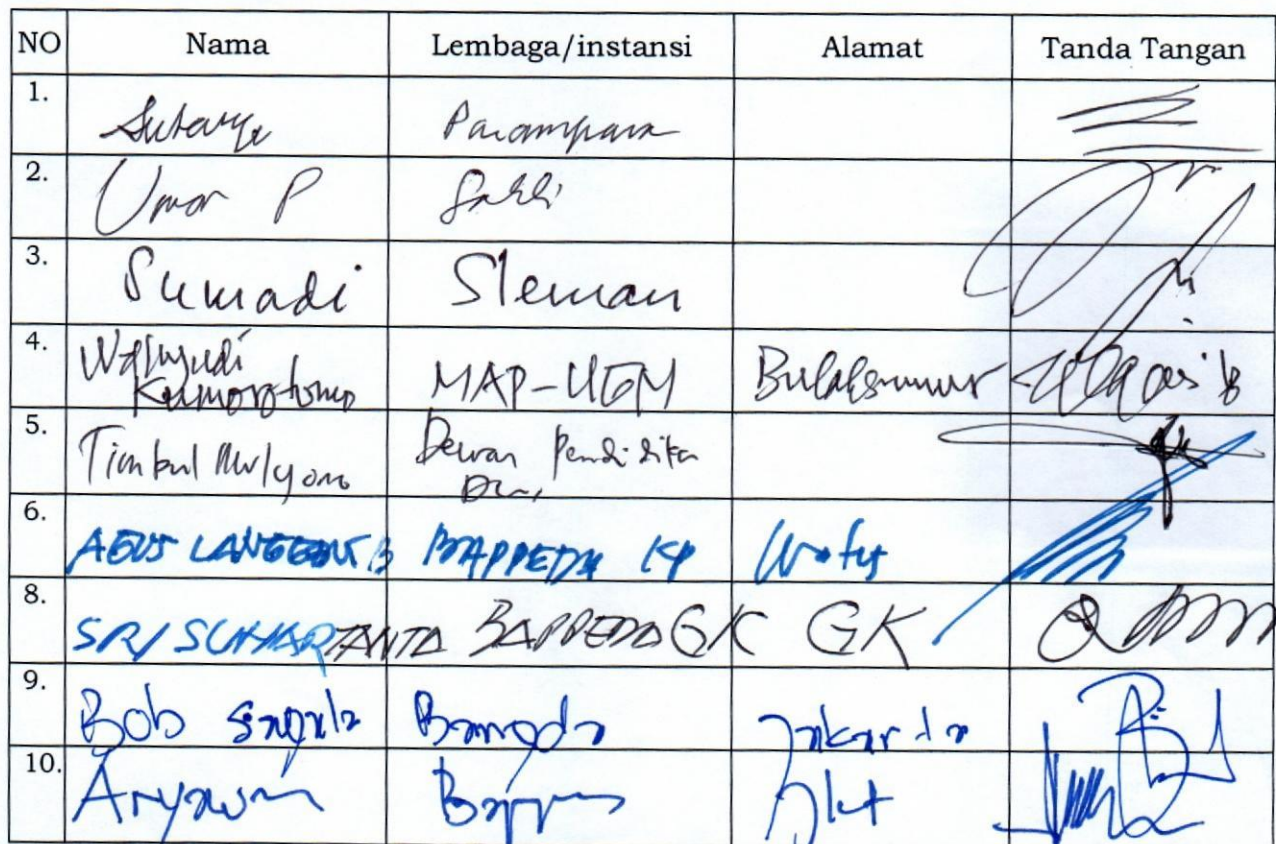 NO Nama Lembaga/instansi Alamat Tanda Tangan
1. Sutaryo Parampara
2. Umar P Sahli
3. Sumadi Sleman
4. Wahyudi Kumorotomo MAP-UGM Bulaksumur
5. Timbul Mulyono Dewan Pendidikan
6. AGUS LANGGENG B BAPPEDA KP Wates
8. SRI SUHARTANTA BAPPEDA GK GK
9. Bob Sagala Bangda Jakarta
10. Aryawan Jkt